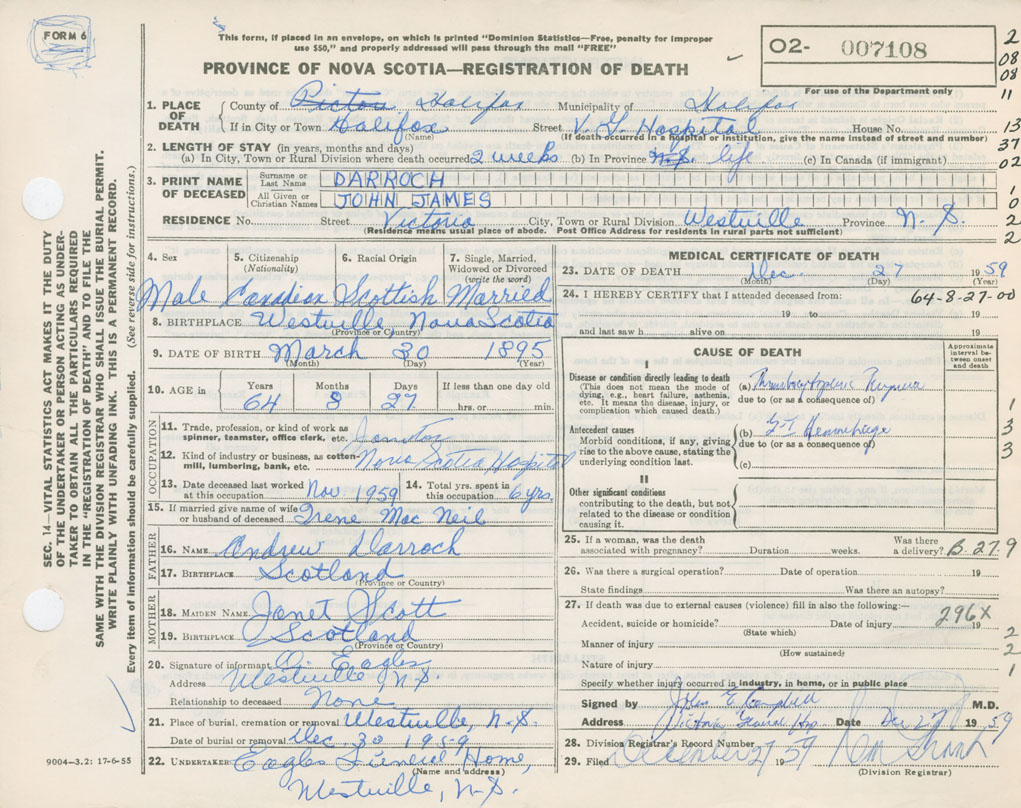 FORM 6
This form, if placed in an envelope, on which is printed "Dominion Statistics—Free, penalty for improper
use $50," and properly addressed will pass through the mail "FREE"
PROVINCE OF NOVA SCOTIA—REGISTRATION OF DEATH
02- 007108
For use of the Department only
2
08
08
11
13
37
02
1
0
2
2
SEC. 14—VITAL STATISTICS ACT MAKES IT THE DUTY
OF THE UNDERTAKER OR PERSON ACTING AS UNDER-
TAKER TO OBTAIN ALL THE PARTICULARS REQUIRED
IN THE "REGISTRATION OF DEATH" AND TO FILE THE
SAME WITH THE DIVISION REGISTRAR WHO SHALL ISSUE THE BURIAL PERMIT.
WRITE PLAINLY WITH UNFADING INK. THIS IS A PERMANENT RECORD.
Every item of information should be carefully supplied. (See reverse side for instructions.)
1. PLACE OF DEATH County of Pictou Halifax Municipality of Halifax
If in City or Town Halifax (Name) Street V. G. Hospital House No.
(If death occurred in a hospital or institution, give the name instead of street and number)
2. LENGTH OF STAY (in years, months and days)
(a) In City, Town or Rural Division where death occurred 2 weeks (b) In Province N.S. life (c) In Canada (if immigrant)
3. PRINT NAME OF DECEASED Surname or Last Name DARROCH
All Given or Christian Names JOHN JAMES
RESIDENCE No. Street Victoria City, Town or Rural Division Westville Province N.S.
(Residence means usual place of abode. Post Office Address for residents in rural parts not sufficient)
4. Sex 5. Citizenship (Nationality) 6. Racial Origin 7. Single, Married, Widowed or Divorced (write the word)
Male Canadian Scottish Married
8. BIRTHPLACE Westville, Nova Scotia
(Province or Country)
9. DATE OF BIRTH March 30 1895
(Month) (Day) (Year)
10. AGE in Years Months Days If less than one day old
64 8 27 hrs. or min.
OCCUPATION
11. Trade, profession, or kind of work as spinner, teamster, office clerk, etc. Janitor
12. Kind of industry or business, as cotton-mill, lumbering, bank, etc. Nova Scotia Hospital
13. Date deceased last worked at this occupation Nov. 1959 14. Total yrs. spent in this occupation 6 yrs.
15. If married give name of wife or husband of deceased Irene Mac Neil
FATHER
16. NAME Andrew Darroch
17. BIRTHPLACE Scotland
(Province or Country)
MOTHER
18. MAIDEN NAME Janet Scott
19. BIRTHPLACE Scotland
(Province or Country)
20. Signature of informant Eagles
Address Westville, N.S.
Relationship to deceased None
21. Place of burial, cremation or removal Westville, N.S.
Date of burial or removal Dec. 30 1959
22. UNDERTAKER Eagles Funeral Home,
(Name and address)
Westville, N.S.
9004—3.2: 17-6-55
MEDICAL CERTIFICATE OF DEATH
23. DATE OF DEATH Dec. 27 1959
(Month) (Day) (Year)
24. I HEREBY CERTIFY that I attended deceased from: 64-8-27-00
19 to 19
and last saw h alive on 19
CAUSE OF DEATH
Approximate interval between onset and death
I
Disease or condition directly leading to death
(This does not mean the mode of dying, e.g., heart failure, asthenia, etc. It means the disease, injury, or complication which caused death.)
(a) Thrombocytopenic Purpura
due to (or as a consequence of)
Antecedent causes
Morbid conditions, if any, giving rise to the above cause, stating the underlying condition last.
(b) G I Hemorrhage
due to (or as a consequence of)
(c)
1
3
3
II
Other significant conditions
contributing to the death, but not related to the disease or condition causing it.
25. If a woman, was the death associated with pregnancy? Duration weeks. Was there a delivery? B-27-9
26. Was there a surgical operation? Date of operation 19
State findings Was there an autopsy?
27. If death was due to external causes (violence) fill in also the following:—
296X
Accident, suicide or homicide? Date of injury 19
(State which)
Manner of injury
(How sustained)
Nature of injury
2
2
1
Specify whether injury occurred in industry, in home, or in public place
Signed by John E Campbell M.D.
Address Victoria General Hosp. Date Dec 27 1959
28. Division Registrar's Record Number
29. Filed December 27 1959
(Division Registrar)